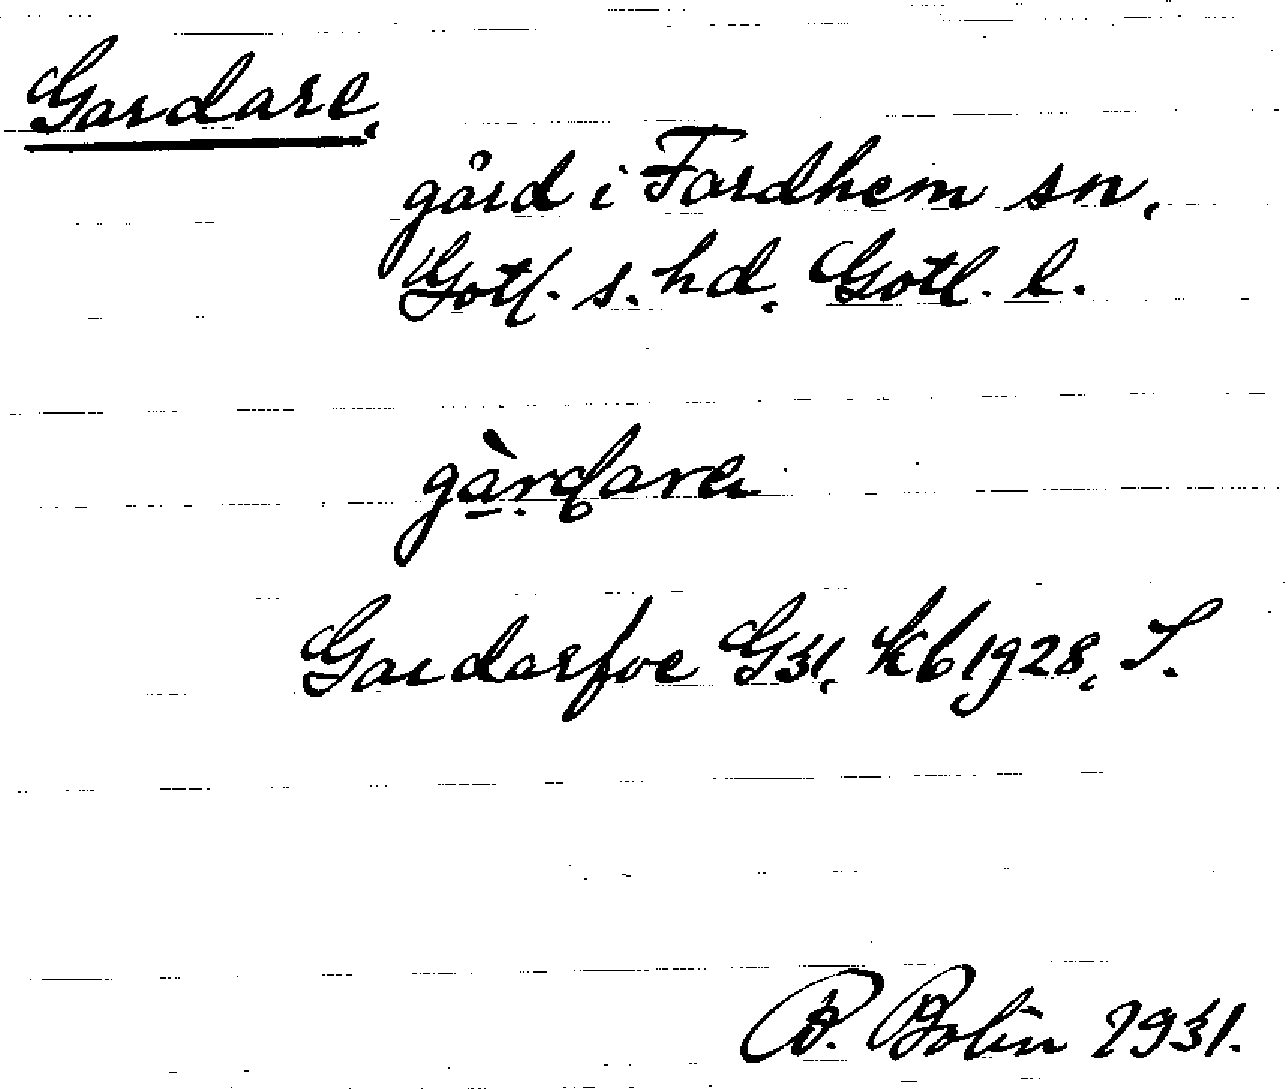 Gardare,
gård i Fardhem sn,
Gotl. s. hd. Gotl. l.
gàrdarȩ
Gardarfve G31, Kb 1928, S.
B. Bolin 1931.